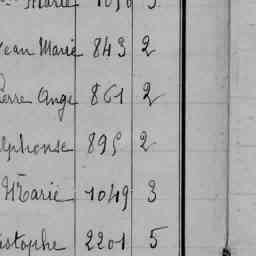 Marie 1036 3
Jean Marie 843 2
Pierre Ange 861 2
Alphonse 895 2
Marie 1049 3
istophe 2201 5